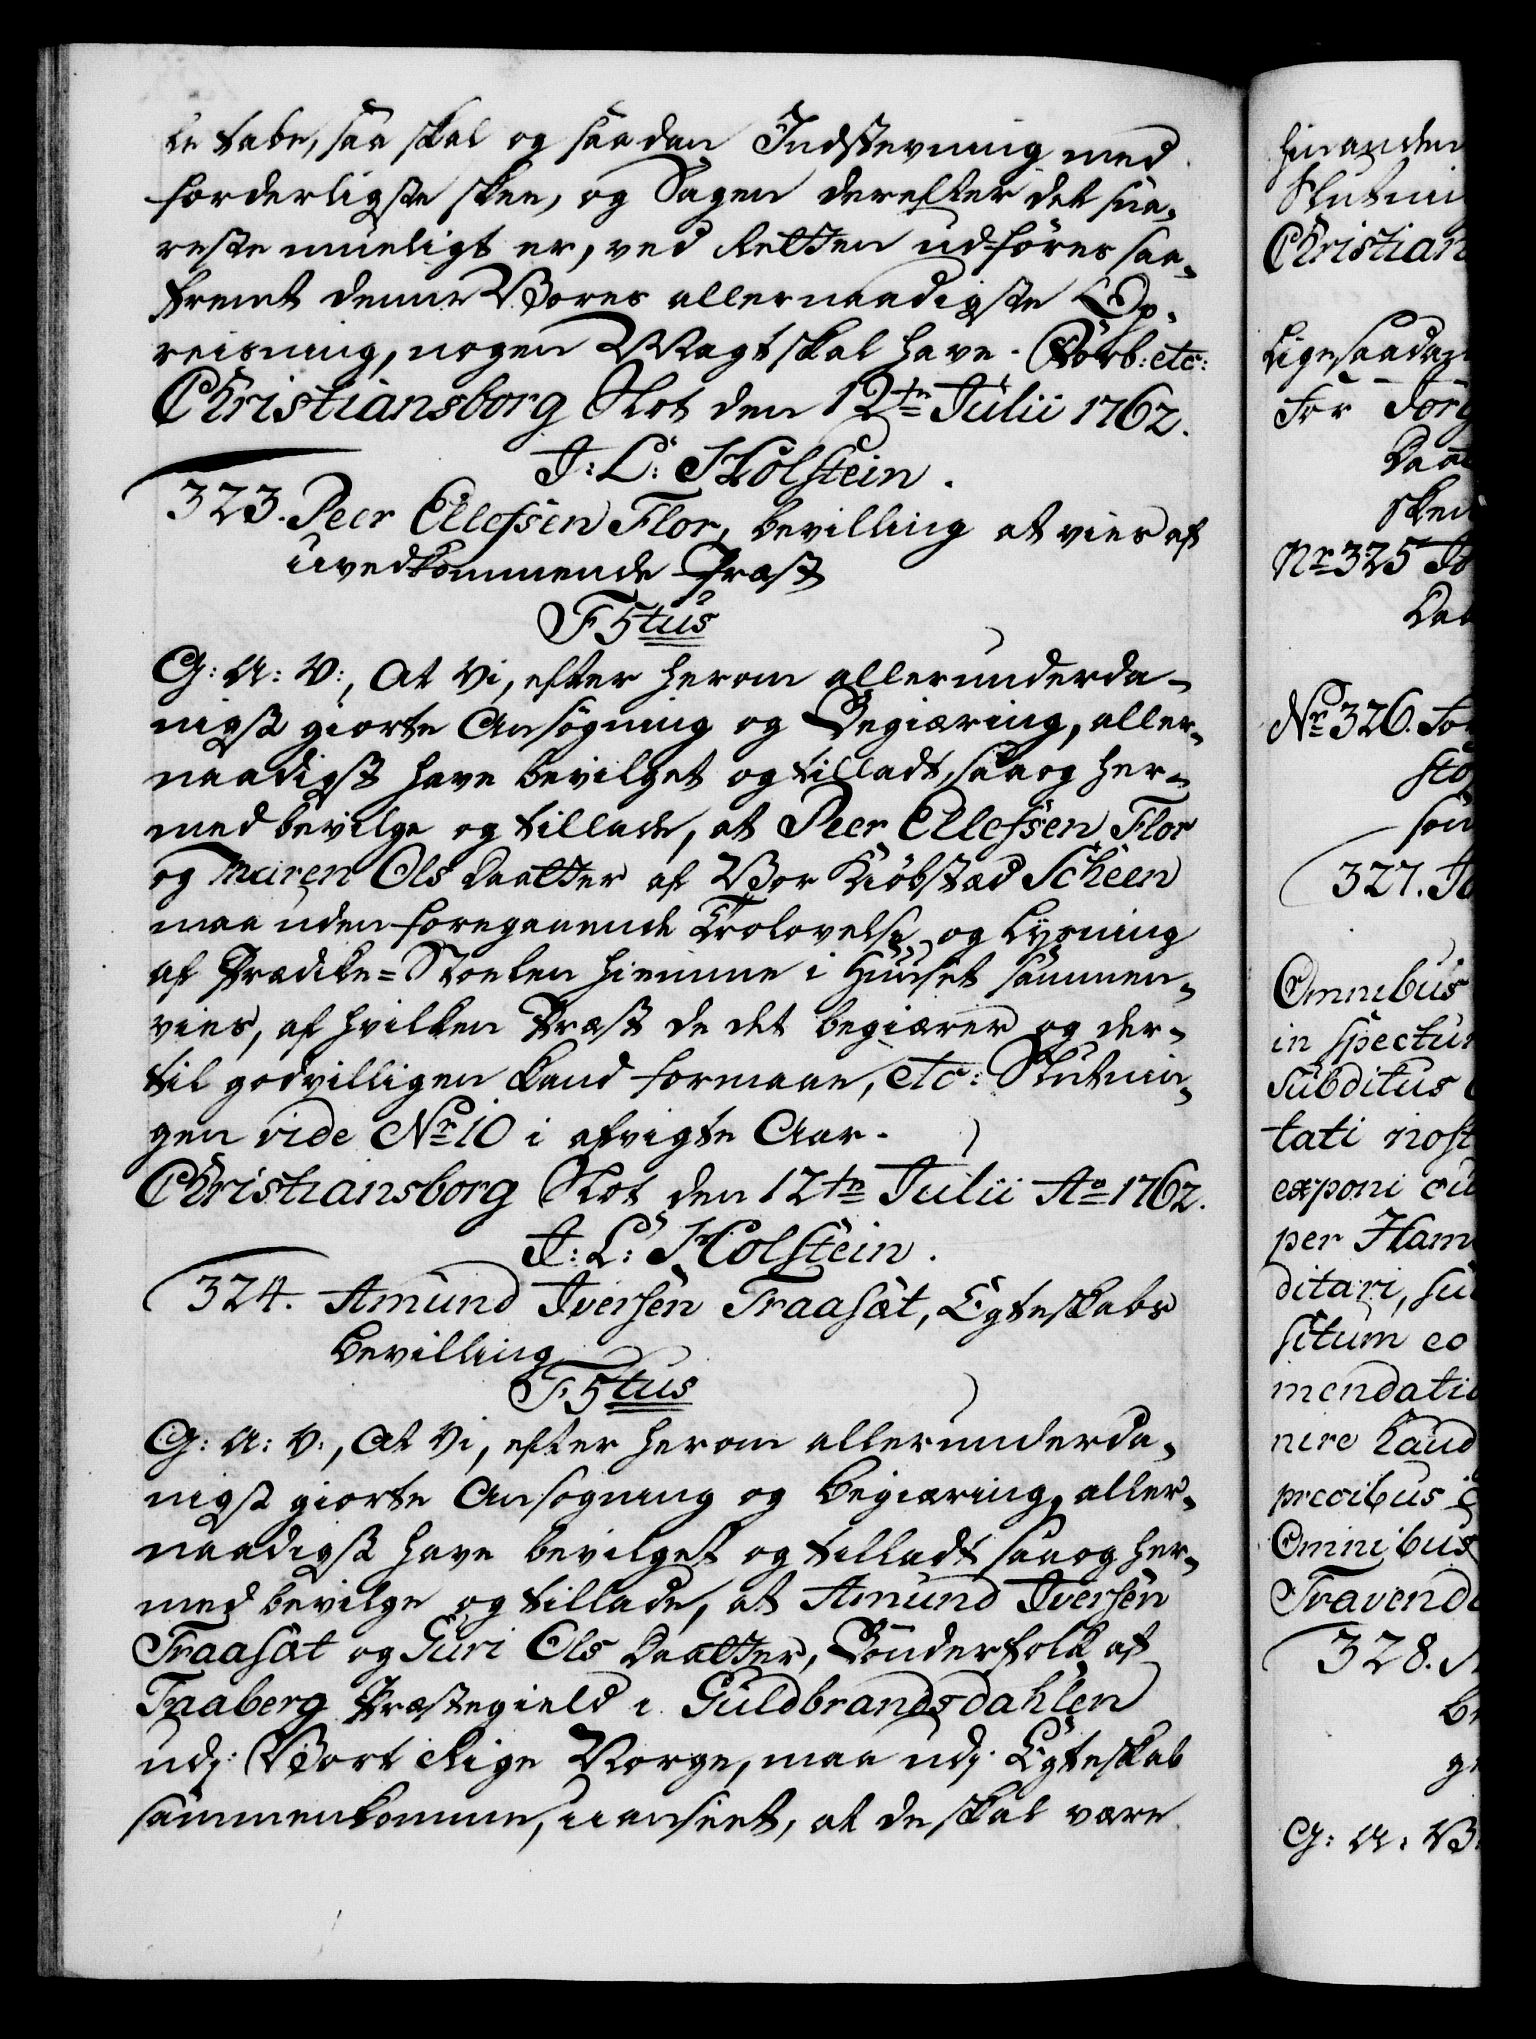 le tabe, saa skal og saadan Indstevning med
forderligste skee, og Sagen derefter det sna-
reste mueligt er, ved Retten udföres saa-
fremt denne Vores allernaadigste Op-
reisning, nogen Magt skal have. Forb: etc:
Christiansborg Slot den 12te Julii 1762.
J: L: Holstein.
323. Peer Ellefsen Flor, bevilling at vies af
uvedkommende Præst
F5tus
G: A: V:, At Vi, efter herom allerunderda-
nigst giorte Ansögning og Begiæring, aller-
naadigst have bevilget og tilladt, saa og her-
med bevilge og tillade, at Peer Ellefsen Flor
og Maren Ols Daatter af Vor Kiöbstæd Scheen
maa uden foregaaende Trolovelse og Lysning
af Prædike=Stoelen hiemme i Huuset sammen-
vies, af hvilken Præst de det begiærer og der-
til godvilligen kand formaae, etc: Slutnin-
gen vide No 10 i afvigte Aar.
Christiansborg Slot den 12te Julii Ao 1762.
J: L: Holstein.
324. Amund Iversen Traasæt, Egteskabs
bevilling
F5tus
G: A: V:, At Vi, efter herom allerunderda-
nigst giorte Ansögning og begiæring, aller-
naadigst have bevilget og tilladt saa og her-
med bevilge og tillade, at Amund Iversen
Traasæt og Guri Ols Daatter, Bönderfolk af
Faaberg Præstegield i Guldbrandsdahlen
udj Vort Rige Norge, maa udj Egteskab
sammenkomme, uanseet, at de skal være
hinanden
Slutnin
Christian
Ligesaadan
for Jörg
Daa
sken
No 325 Jo
Da
No 326. Jo
sto
sön
327. Jo
Omnibus
in spectur
Subditus
tati nost
exponi cu
per Ham
ditari, su
situm eo
mendatio
nire haud
precibus
Omnibus
Travend
328.
be
ge
G: A: V: